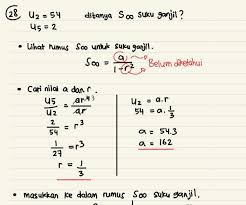 28. U2 = 54 ditanya S∞ suku ganjil?
U5 = 2
• Lihat rumus S∞ untuk suku ganjil.
S∞ = a / 1-r² → Belum diketahui
• Cari nilai a dan r.
U5 / U2 = ar⁴ / ar
2 / 54 = r³
1 / 27 = r³
r = 1/3
U2 = a.r
54 = a. 1/3
a = 54.3
a = 162
• masukkan ke dalam rumus S∞ suku ganjil.